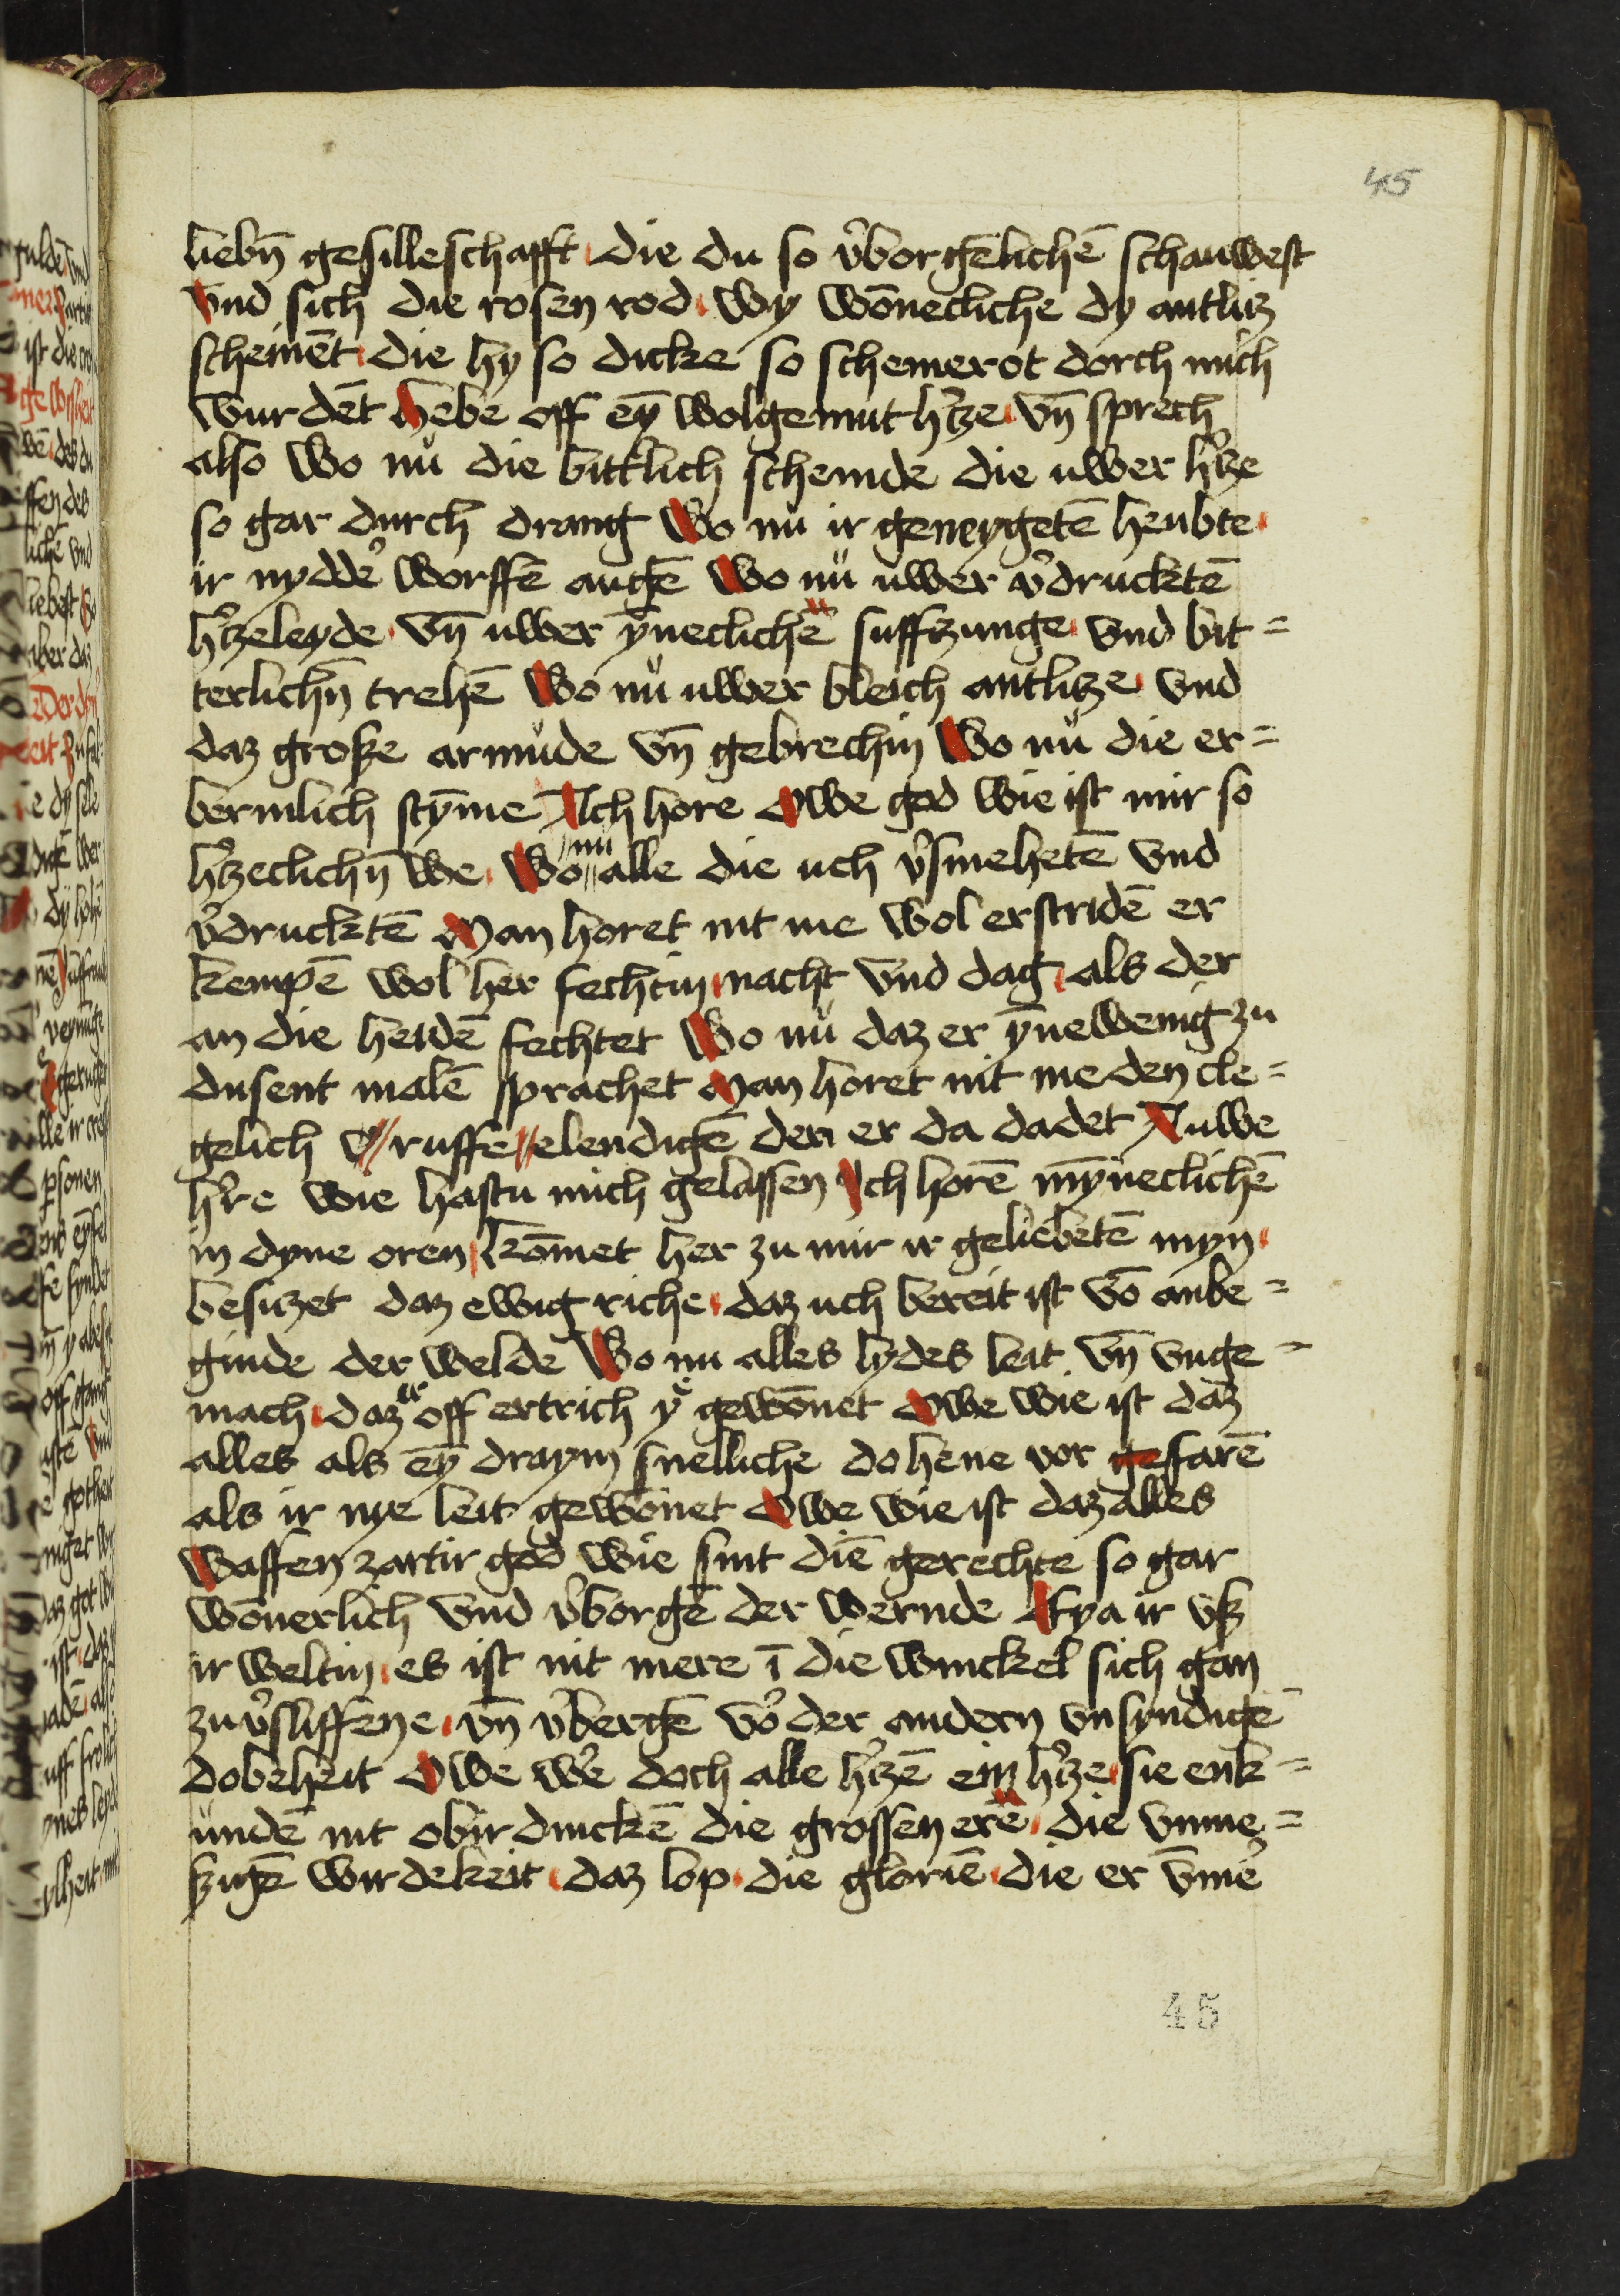 45
liebn̄ gesilleschafft die du so v̉borgēlichē schauwest
vnd sich die rosen rod wy wōnecliche dy antlitz
scheinēt die hy so dicke so schemerot dorch mich
wurdēt Hebe off eȳ wolgemut hͬtze vn̄ sprech
also wo nů die bittlich schemde die uwer hͬtze
so gar durch drang Wo nů ir geneygetē heubte
ir nyddeͬ worffē augē Wo nů uwer v̉drucktē
hͬtzeleyde vn̄ uwer ȳneclichē suffzunge vnd bit=
terlichn̄ trehē Wo nů uwer bleich antlitze vnd
daz große armůde vn̄ gebrechin Wo nů die er=
bermlich stȳme Ich hore Owe god wie ist mir so
hͬtzeclichn̄ we Wo nu alle die uch v̉smehetē vnd
v̉drucktē Man horet nit me wol erstridē er
kempē wol her fechtin nacht vnd dag als der
an die heidē fechtet Wo nů daz er ȳnewenig zu
dusent malē sprachet Man horet nit me den cle=
gelich ruffe elendigē den er da dadet Auwe
hͬre wie hastu mich gelassen Ich horē mȳneclichē
in dyne oren kōmet her zu mir ir geliebetē myn
besitzet daz ewig riche daz uch bereit ist vō anbe=
ginde der welde Wo nu alles lydes leit vn̄ vnge=
mach daz er off ertrich ye gewōnet Owe wie ist daz
alles als eȳ draym snelliche dohene vor gefarē
als ir nye leit gewōnet Owe wie ist daz alles
Waffen zartir god wie sint diē gerechte so gar
wōnerlich vnd v̉borgē der wernde Eya ir vß
ir weltin es ist nit mere ī die winckel sich gan
zu v̉sliffene vn̄ v̉bergē voͬ der andern vnsyndigē
dobeheit Owe weͬ doch alle hͬtzē ein hͬtze sie enk=
ůndē nit obir dinckē die grossen erē die vnme=
ßigē wirdekeit daz lop die gloriē die er v̄meͬ
45